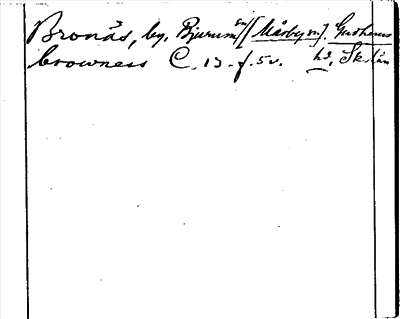 Bronäs, by, Bjurum sn [Måsby sn]. Gudhems
browness C. 13 f. 5v. hd, Sk. län